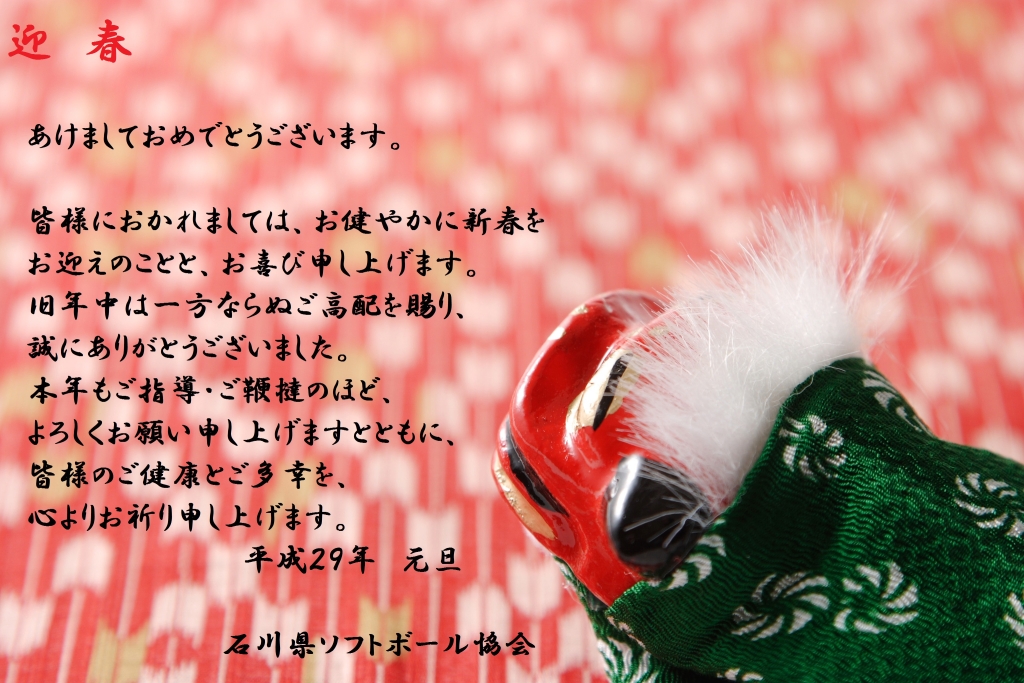 迎　春
あけましておめでとうございます。
皆様におかれましては、お健やかに新春を
お迎えのことと、お喜び申し上げます。
旧年中は一方ならぬご高配を賜り、
誠にありがとうございました。
本年もご指導・ご鞭撻のほど、
よろしくお願い申し上げますとともに、
皆様のご健康とご多幸を、
心よりお祈り申し上げます。
平成29年　元旦
石川県ソフトボール協会